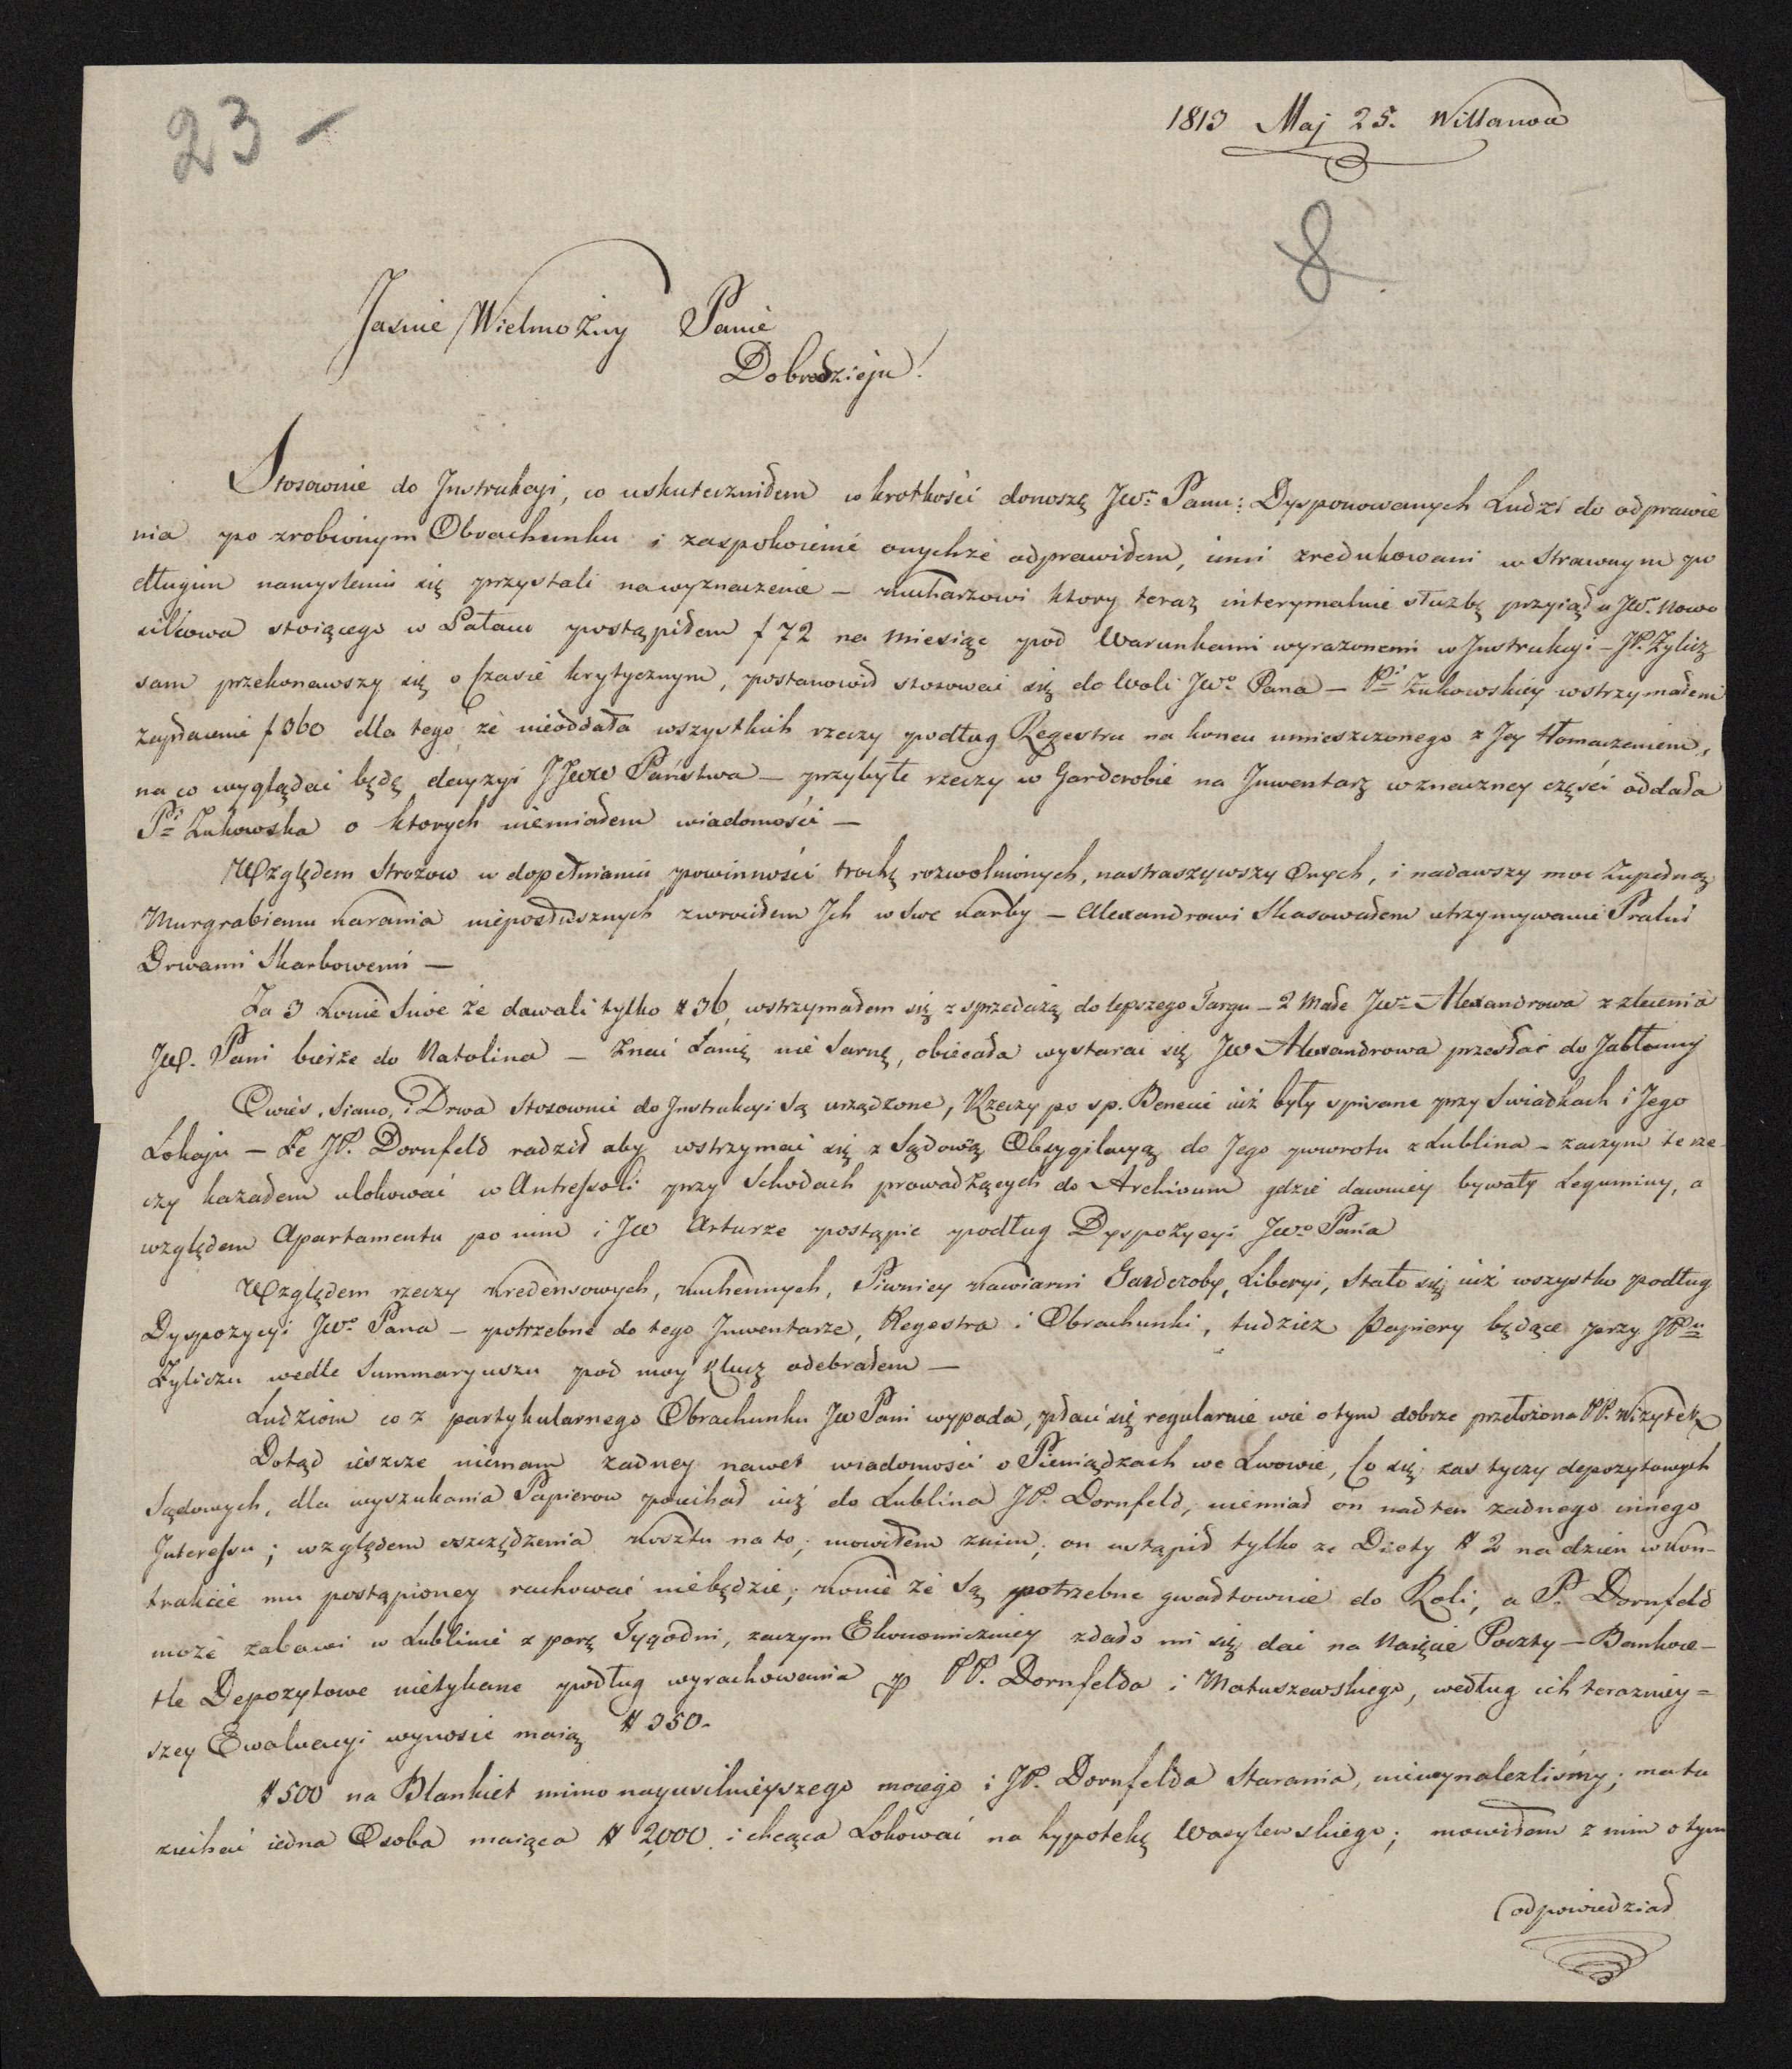 23 -
1813 Maj 25. Willanow
8
Jasnie Wielmożny Panie
Dobrodzieju!
Stosownie do Instrukcyi, co uskuteczniłem w krotkości donoszę JWo. Panu: Dysponowanych Ludzi do odprawie
nia po zrobionym Obrachunku i zaspokoienié onychże odprawiłem, inni zredukowani w Strawnym po
długim namysleniu się przystali na wyznaczenie — Kucharzowi ktory teraz interymalnie służbę przyiął u JW. Nowo
silcowa stoiącego w Pałacu postąpiłem f 72 na miesiąc pod Warunkami wyrażonemi w Instrukcyi — JP. Zylicz
sam przekonawszy się o Czasie krytycznym, postanowił stosować się do Woli JWo. Pana — Pi Żukowskiey wstrzymałem
zapłacenie f 360 dla tego że nieoddała wszystkich rzeczy podług Regestru na koncu umieszczonego z Jey tłomaczeniem,
na co wyglądać będę decyzyi JJWW Państwa — przybyłe rzeczy w Garderobie na Inwentarz w znaczney części oddała
Pi Żukowska o ktorych niemiałem wiadomości —
Względem Strożow w dopełnianiu powinności trochę rozwolnionych, nastraszywszy Onych, i nadawszy moc Zupełną
Murgrabiemu karania nieposłusznych zwrociłem Ich w Swe karby — Alexandrowi Skasowałem utrzymywanie Pralni
Drwami Skarbowemi —
Za 3 konie Siwe że dawali tylko # 36, wstrzymałem się z sprzedażą do lepszego Targu — 2 Małe JWa Alexandrowa z zlecenia
JW. Pani bierze do Natolina — Znać Łanię nie Sarnę, obiecała wystarać się JW Alexandrowa przesłać do Jabłonny
Owies, Siano, i Drwa Stosownie do Instrukcyi są urządzone, Rzeczy po sp. Benecie iuż były spisane przy Swiadkach i Jego
Lokaju — Że JP. Dornfeld radził aby wstrzymać się z Sądową Obsygilacyą do Jego powrotu z Lublina — zaczym te rze
czy kazałem ulokować w Antressoli przy Schodach prowadzących do Archivum gdzie dawniey bywały Leguminy, a
względem Apartamentu po nim i JW Arturze postąpie podług Dyspozycyi JWo Pana
Względem rzeczy kredensowych, kuchennych, Piwnicy kawiarni Garderoby, Liberyi, Stało się iuż wszystko podług
Dyspozycyi JWo Pana — potrzebne do tego Inwentarze, Regestra i Obrachunki, tudzież Papiery będące przy JPu
Zyliczu wedle Summaryuszu pod moy Klucz odebrałem —
Ludziom co z partykularnego Obrachunku JW Pani wypada, płaci się regularnie wie o tym dobrze przełożona PP. Wizytek
Dotąd ieszcze niemam żadney nawet wiadomości o Pieniądzach we Lwowie, Co się zas tyczy depozytowych
Sądowych, dla wyszukania Papierow poiechał iuż do Lublina JP. Dornfeld, niemiał on nad ten żadnego innego
Interessu; względem oszczędzenia kosztu na to, mowiłem z nim; on ustąpił tylko że Diety # 2 na dzien w kon-
trakcie mu postąpioney rachować niebędzie; konie że są potrzebne gwałtownie do Roli, a P. Dornfeld
może zabawi w Lublinie z parę Tygodni, zaczym Ekonomiczniey zdało mi się dać na Naięcie Poczty — Bankoce-
tle Depozytowe nietykane podług wyrachowania PP. Dornfelda i Matuszewskiego, według ich terazniey=
szey Ewaluacyi wynosić maią # 350.
# 500 na Blankiet mimo nayusilnieyszego moiego i JP. Dornfelda Starania, niewynalezliśmy; ma tu
ziechać iedna Osoba maiąca # 2,000 i chcąca Lokować na hypotekę Wasylewskiego; mowiłem z nim o tym
odpowiedział